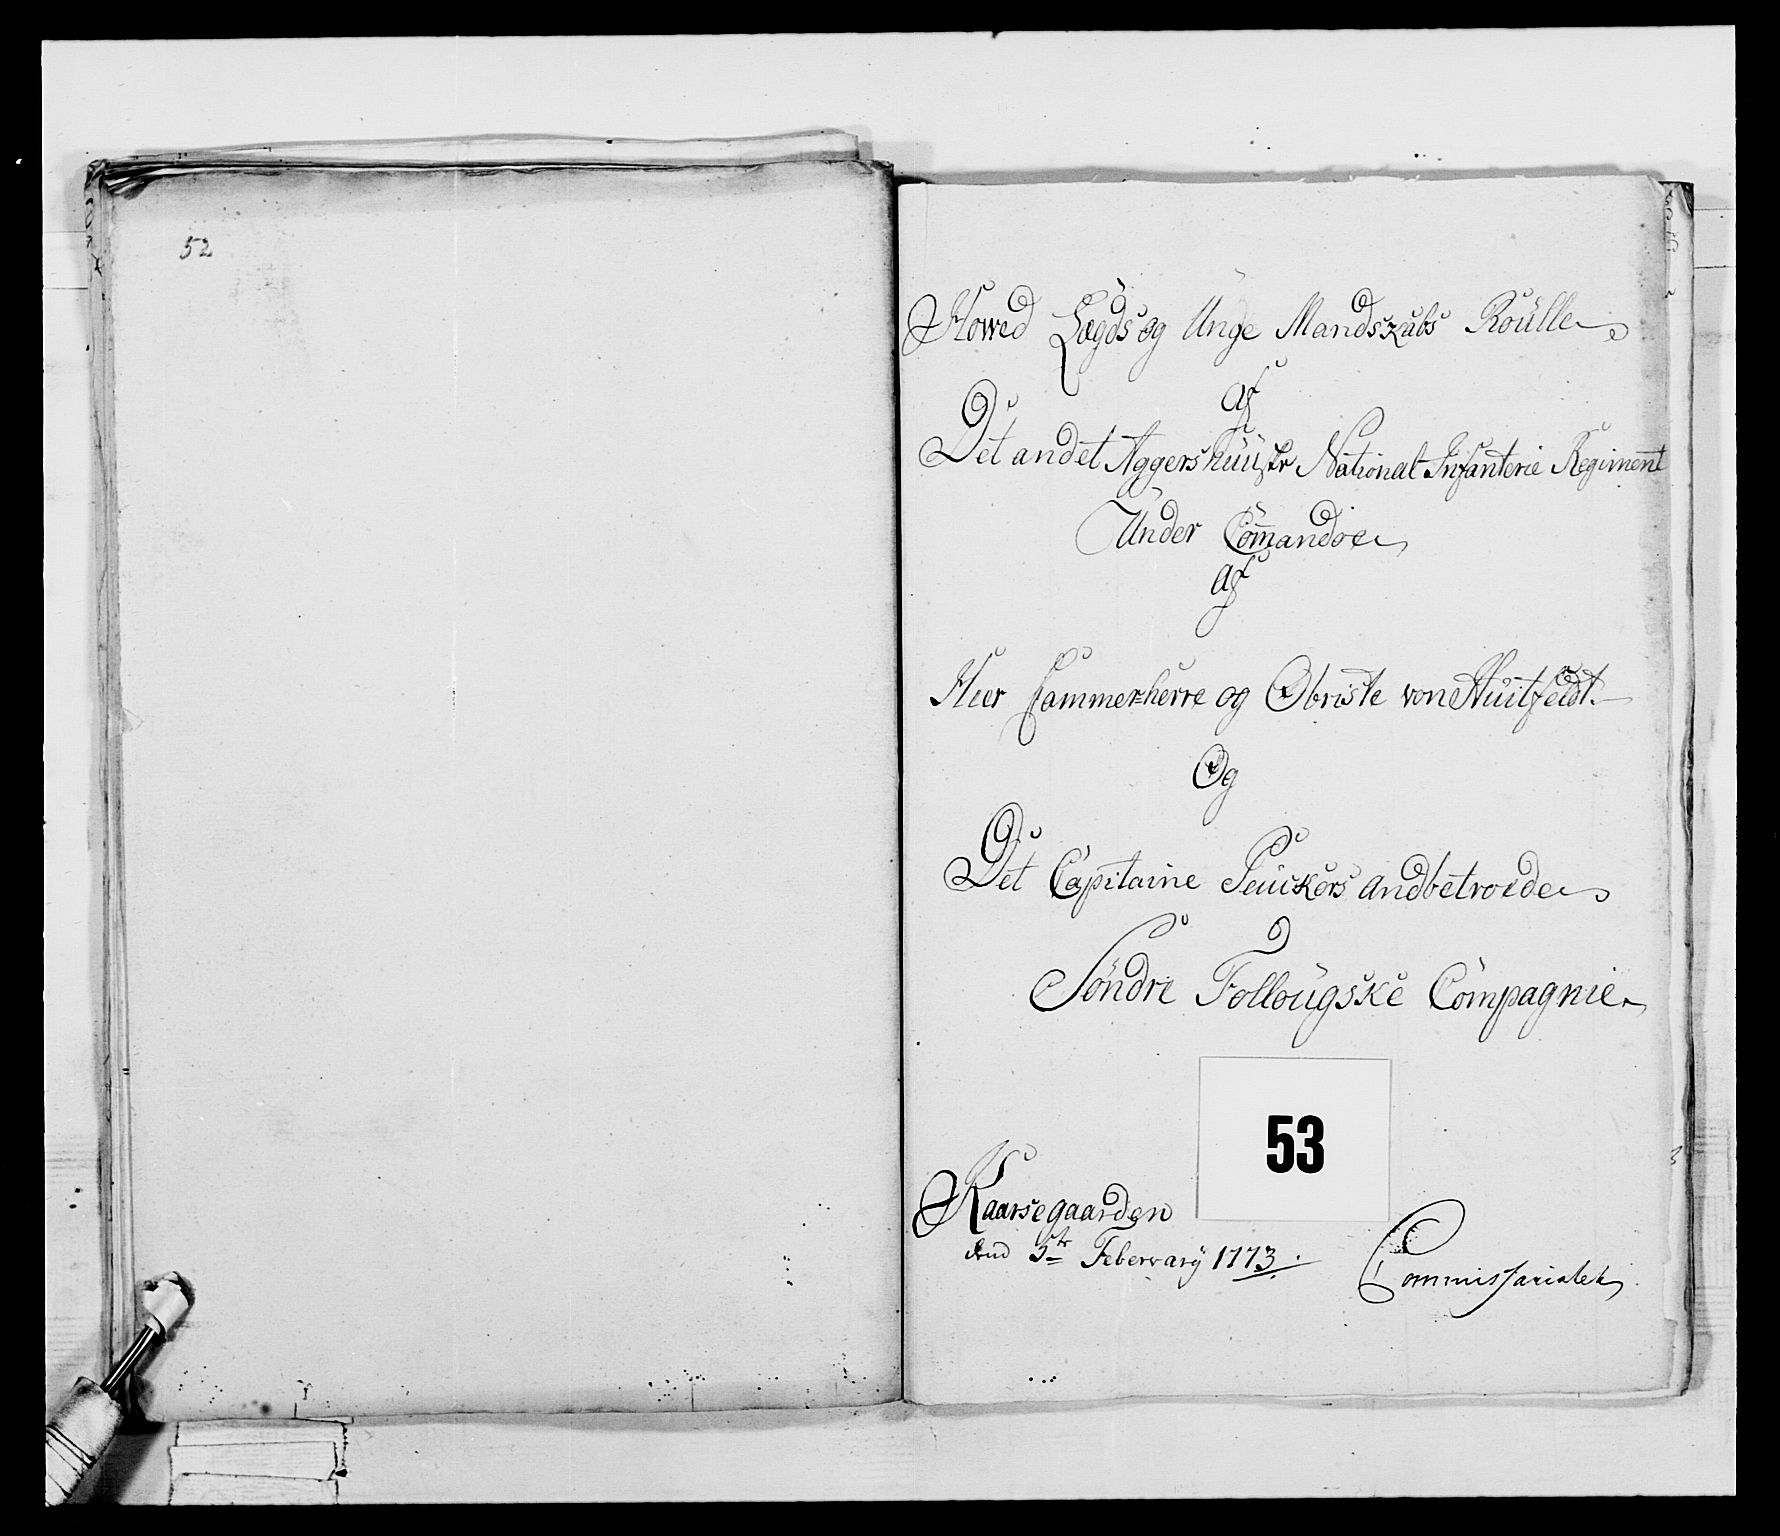 52
Howed Lægds og Unge Mandskabs Roulle
Af
Det andet Aggershuusske National Infanterie Regiment
Under Com̅andoe
Af
Herr Cammer-herre og Obriste von Huitfeldt.
Og
Det Capitaine Peuckers andbetroede
Søndre Follougske Compagnie
53
Kaarsegaarden
dend 5te Februarÿ 1773.
Commissariatet